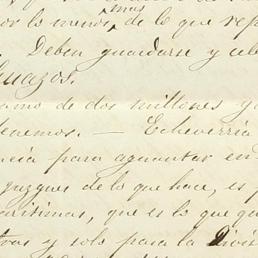 mas
por lo menos, de lo que rep
. Deben guardarse y cele
Guazos.
amo de dos millones y
tenemos. — Echeverría
ncia para aguantar en
juzgues de lo que hace, es p
arítimas, que es lo que qu
tras y solo para la Divis